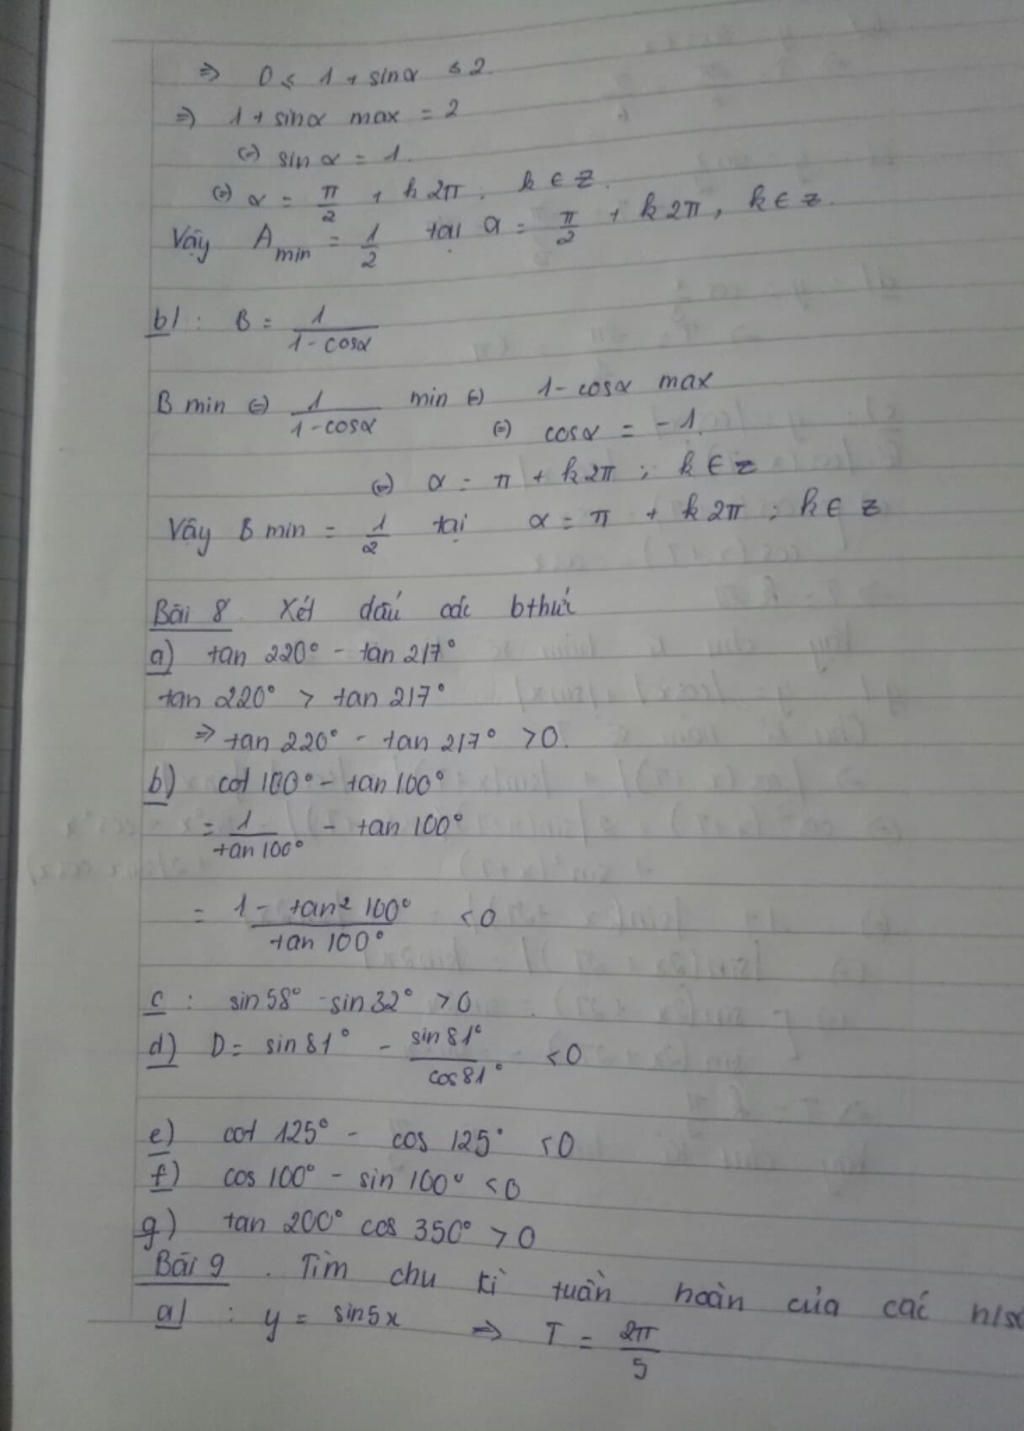 => 0 ≤ 1 + sinα ≤ 2
=> 1 + sinα max = 2
(=) sin α = 1.
(=) α = π/2 + k2π; k ∈ Z.
Vậy A min = 1/2 tại α = π/2 + k2π, k ∈ Z.
b/ : B = 1/(1 - cosα)
B min (=) 1/(1 - cosα) min (=) 1 - cosα max
(=) cosα = -1.
(=) α = π + k2π ; k ∈ Z
Vậy B min = 1/2 tại α = π + k2π ; k ∈ Z
Bài 8 Xét dấu các bthức
a) tan 220° - tan 217°
tan 220° > tan 217°
=> tan 220° - tan 217° > 0.
b) cot 100° - tan 100°
= 1/(tan 100°) - tan 100°
= (1 - tan² 100°)/(tan 100°) < 0
c : sin 58° - sin 32° > 0
d) D = sin 81° - sin 81°/cos 81° < 0
e) cot 125° - cos 125° < 0
f) cos 100° - sin 100° < 0
g) tan 200° cos 350° > 0
Bài 9 . Tìm chu kì tuần hoàn của các h/số
a/ : y = sin5x => T = 2π/5